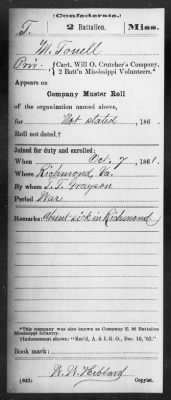 (Confederate.)
T. 2 Battalion. Miss.
M. Tonell
Pvt., Capt. Will O. Crutcher's Company,
2 Batt'n Mississippi Volunteers.*
Appears on
Company Muster Roll
of the organization named above,
for Not stated, 186 .
Roll not dated.†
Joined for duty and enrolled:
When Oct. 7, 1861.
Where Richmond, Va.
By whom T. T. Grayson
Period War
Remarks: Absent sick in Richmond
*This company was also known as Company E, 2d Battalion
Mississippi Infantry.
†Indorsement shows: "Rec'd, A. & I. G. O., Dec. 10, '62."
Book mark:
W. W. Hibbard
(642) Copyist.